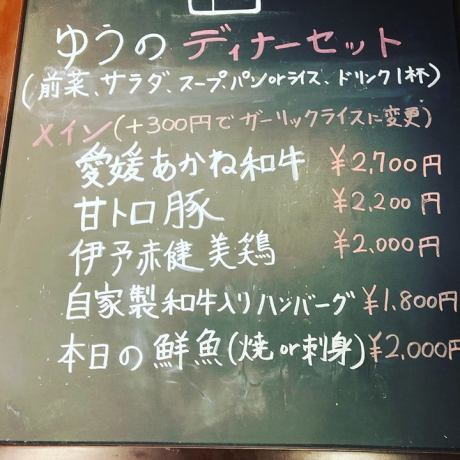 ゆうの ディナーセット
(前菜、サラダ、スープ、パンorライズ、ドリンク1杯)
メイン(+300円でガーリックライスに変更)
愛媛あかね和牛 ¥2,700円
甘トロ豚 ¥2,200円
伊予赤健美鶏 ¥2,000円
自家製和牛入りハンバーグ ¥1,800円
本日の鮮魚(焼or刺身) ¥2,000円